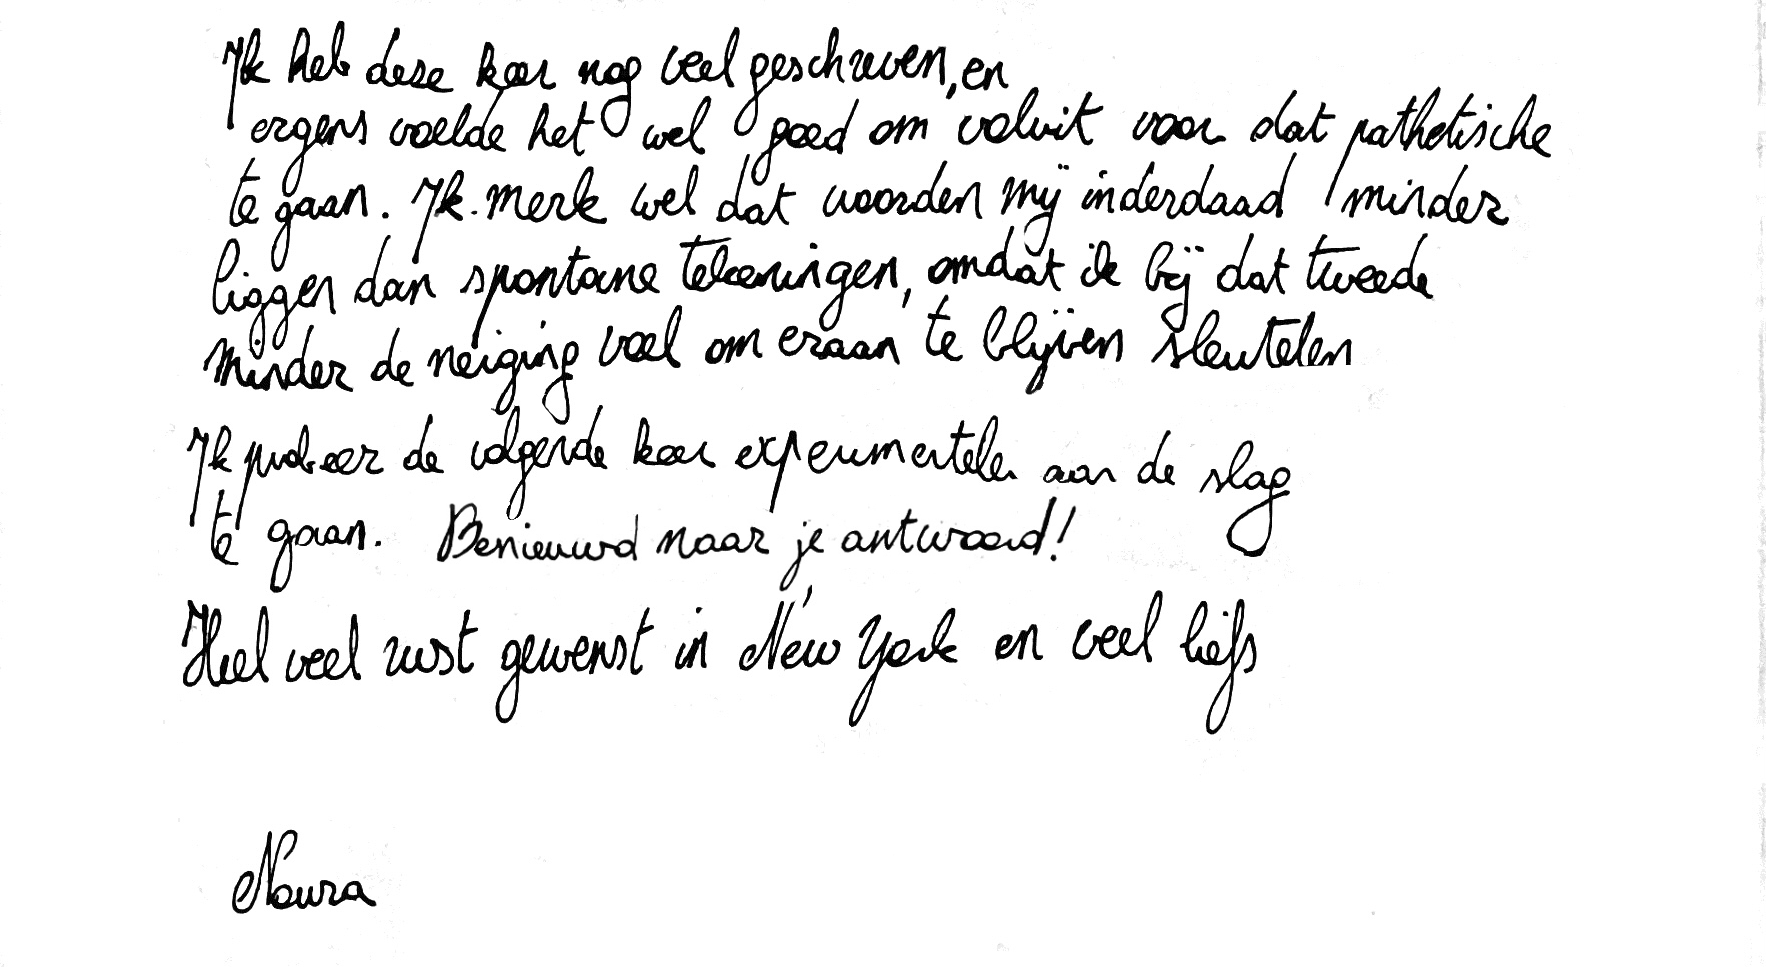 Ik heb deze keer nog veel geschreven, en
ergens voelde het wel goed om voluit voor dat pathetische
te gaan. Ik merk wel dat woorden mij inderdaad minder
liggen dan spontane tekeningen, omdat ik bij dat tweede
minder de neiging voel om eraan te blijven sleutelen
Ik probeer de volgende keer experimenteler aan de slag
te gaan. Benieuwd naar je antwoord!
Heel veel rust gewenst in New York en veel liefs
Noura